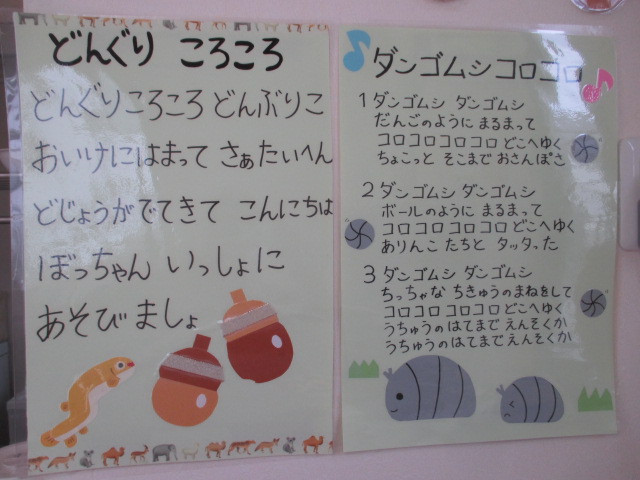 どんぐり ころころ
どんぐりころころ どんぶりこ
おいけにはまって さぁたいへん
どじょうがでてきて こんにちは
ぼっちゃん いっしょに
あそびましょ
ダンゴムシコロコロ
1 ダンゴムシ ダンゴムシ
だんごのように まるまって
コロコロコロコロ どこへゆく
ちょこっと そこまで おさんぽさ
2 ダンゴムシ ダンゴムシ
ボールのように まるまって
コロコロ コロコロ どこへゆく
ありんこ たちと タッタった
3 ダンゴムシ ダンゴムシ
ちっちゃな ちきゅうのまねをして
コロコロ コロコロ どこへゆく
うちゅうの はてまで えんそくか
うちゅうの はてまで えんそくか